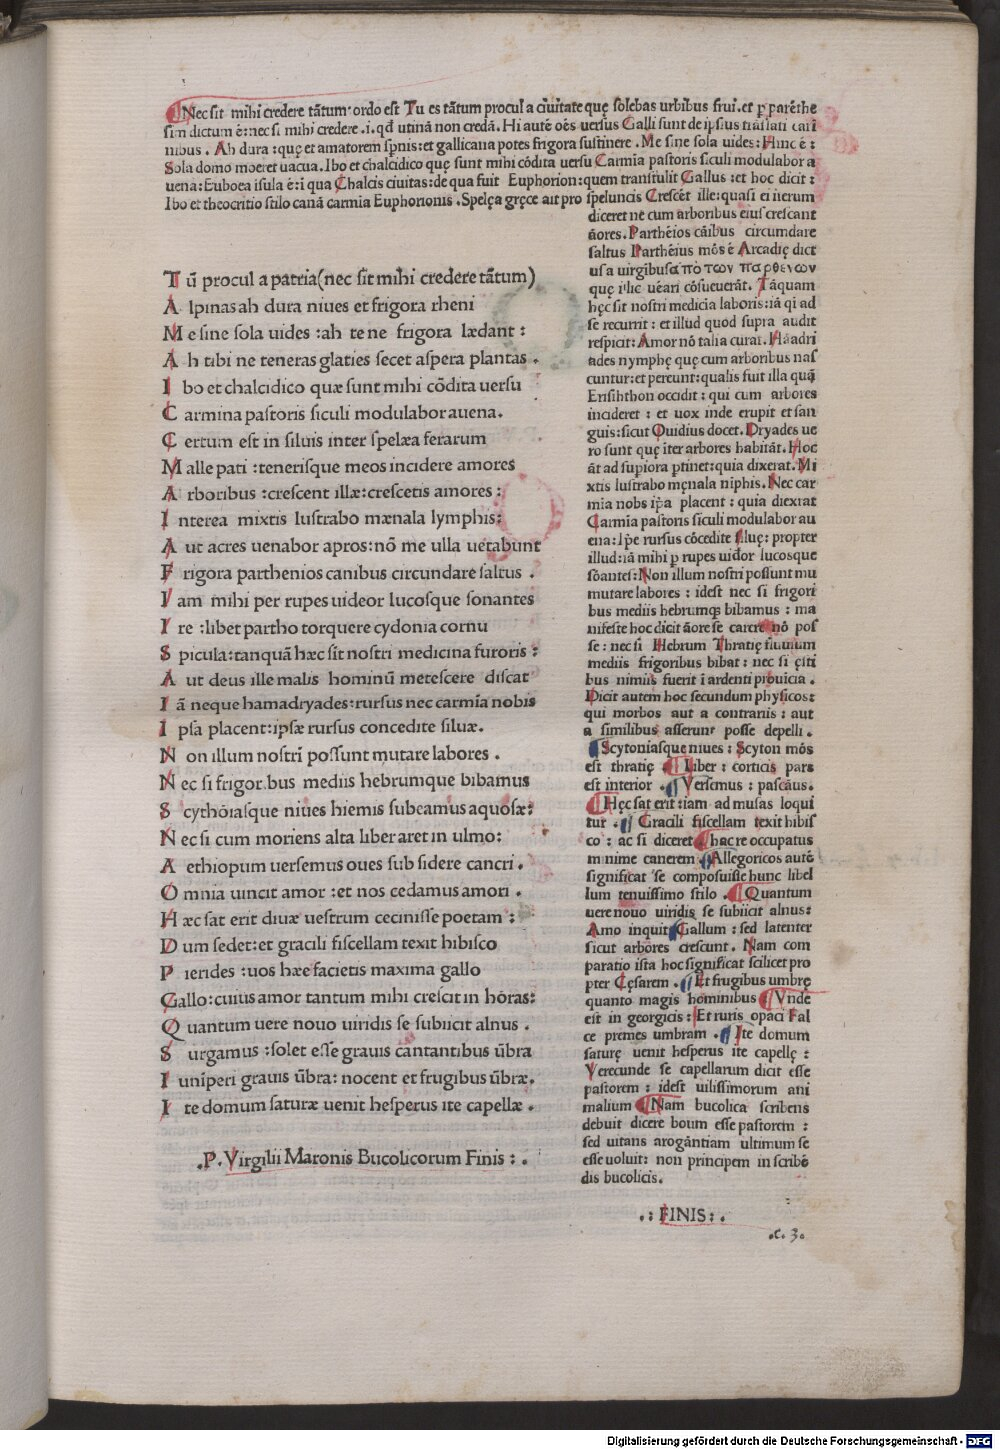 Nec sit mihi credere tãtum·ordo est Tu es tãtum procul a ciuitate quę solebas urbibus frui.et p parẽthe
sim dictum ẽ:nec si mihi credere .i.qđ utinã non credã.Hi autẽ oẽs uersus Galli sunt de ipsius traslati cari
nibus . Ah dura :quę et amatorem spnis:et gallicana potes frigora sustinere . Me sine sola uides:Hinc ẽ:
Sola domo moeret uacua.Ibo et chalcidico quę sunt mihi cõdita uersu Carmia pastoris siculi modulabor a
uena:Euboea isula ẽ:i qua Chalcis ciuitas:de qua fuit Euphorion:quem transtulit Gallus :et hoc dicit:
Ibo et theocritio stilo canã carmia Euphorionis . Spelęa gręce ait pro speluncis Crescẽt ille:quasi ei iterum
Tũ procul a patria(nec sit mihi credere tãtum)
A lpinas ah dura niues et frigora rheni
M e sine sola uides :ah te ne frigora lædant :
A h tibi ne teneras glaties secet aspera plantas .
I bo et chalcidico quæ sunt mihi cõdita uersu
C armina pastoris siculi modulabor auena.
C ertum est in siluis inter spelæa ferarum
M alle pati :tenerisque meos incidere amores
A rboribus :crescent illæ:crescetis amores :
I nterea mixtis lustrabo mænala lymphis:
A ut acres uenabor apros:nõ me ulla uetabunt
F rigora parthenios canibus circundare saltus .
I am mihi per rupes uideor lucosque sonantes
I re :libet partho torquere cydonia cornu
S picula:tanquã hæc sit nostri medicina furoris :
A ut deus ille malis hominũ metescere discat
I ã neque hamadryades:rursus nec carmĩa nobis
I psa placent:ipsæ rursus concedite siluæ.
N on illum nostri possunt mutare labores .
N ec si frigor.bus mediis hebrumque bibamus
S cythõiasque niues hiemis subeamus aquosæ:
N ec si cum moriens alta liber aret in ulmo:
A ethiopum uersemus oues sub sidere cancri .
O mnia uincit amor :et nos cedamus amori .
H æc sat erit diuæ uestrum cecinisse poetam :
D um sedet:et gracili fiscellam texit hibisco
P ierides :uos hæe facietis maxima gallo
Gallo:cuius amor tantum mihi crescit in hõras:
Q uantum uere nouo uiridis se subiicit alnus .
S urgamus :solet esse grauis cantantibus ũbra
I uniperi grauis ũbra: nocent et frugibus ũbræ.
I te domum saturæ uenit hesperus ite capellæ .
.P.Virgilii Maronis Bucolicorum Finis : .
diceret ne cum arboribus eius crescant
ãores.Parthẽios cãibus circumdare
saltus Parthẽius mõs ẽ Arcadię dict
us a uirgibus απο των παρθενων
quę illic uẽari cõsueuerãt. Tãquam
hęc sit nostri medicia laboris:iã qi ad
se recurrit : et illud quod supra audit
respicit: Amor nõ talia curat. Hãadri
ades nymphę quę cum arboribus nas
cuntur:et pereunt:qualis fuit illa quã
Erisihthon occidit : qui cum arbores
incideret : et uox inde erupit et san
guis:sicut Ouidius docet.Dryades ue
ro sunt quę iter arbores habitãt. Hoc
ãt ad supiora ptinet:quia dixerat.Mi
xtis lustrabo męnala niphis.Nec car
mia nobs ip̃a placent : quia diexrat
Carmia pastoris siculi modulabor au
ena:Ip̃e rursus cõcedite siluę: propter
illud:iã mihi p rupes uidor lucosque
sõantes:Non illum nostri possunt mu
mutare labores : idest nec si frigori
bus mediis hebrumq; bibamus : ma
nifeste hoc dicit ãore se carere nõ pos
se : nec si Hebrum Thratię fluuium
mediis frigoribus bibat : nec si ęsti
bus nimiis fuerit ĩ ardenti prouicia .
Dicit autem hoc secundum physicos:
qui morbos aut a contrariis : aut
a similibus asserunt posse depelli .
Scytoniasque niues : Scyton mõs
est thratię . Liber: corticis pars
est interior . Versemus : pascãus.
Hęc sat erit :iam ad musas loqui
tur . Gracili fiscellam texit hibis
co : ac si diceret hac re occupatus
minime canerem .Allegoricos autẽ
significat se composuisse hunc libel
lum tenuissimo stilo . Quantum
uere nouo uiridis se subiicit alnus:
Amo inquit Gallum : sed latenter
sicut arbores crescunt. Nam com
paratio ista hoc significat scilicet pro
pter Cęsarem . Et frugibus umbrę
quanto magis hominibus Vnde
est in georgicis : Et ruris opaci Fal
ce premes umbram . Ite domum
saturę uenit hesperus ite capellę :
Verecunde se capellarum dicit esse
pastorem : idest uilissimorum ani
malium Nam bucolica scribens
debuit dicere boum esse pastorem :
sed uitans arogãntiam ultimum se
esse uoluit: non principem in scribẽ
dis bucolicis.
. : FINIS : .
.c. 3.
Digitalisierung gefördert durch die Deutsche Forschungsgemeinschaft - DFG